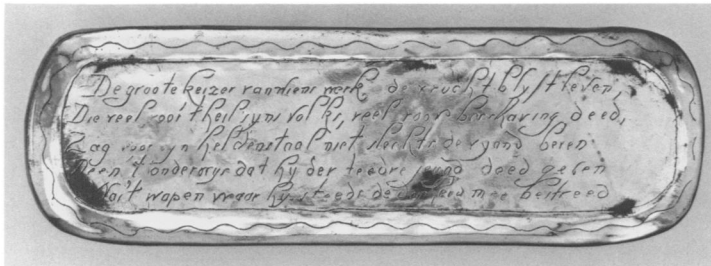 De groote keizer van wiens werk, de vrucht blyft leven,
Die veel voor 't heil zyns volks, veel voor beschaving deed,
Zag voor zyn heldenstaal niet slechts de vyand beven
Neen 't onderwys dat hy der teedre jeugd doed geven
wapen waar hy steeds de mee bestreed